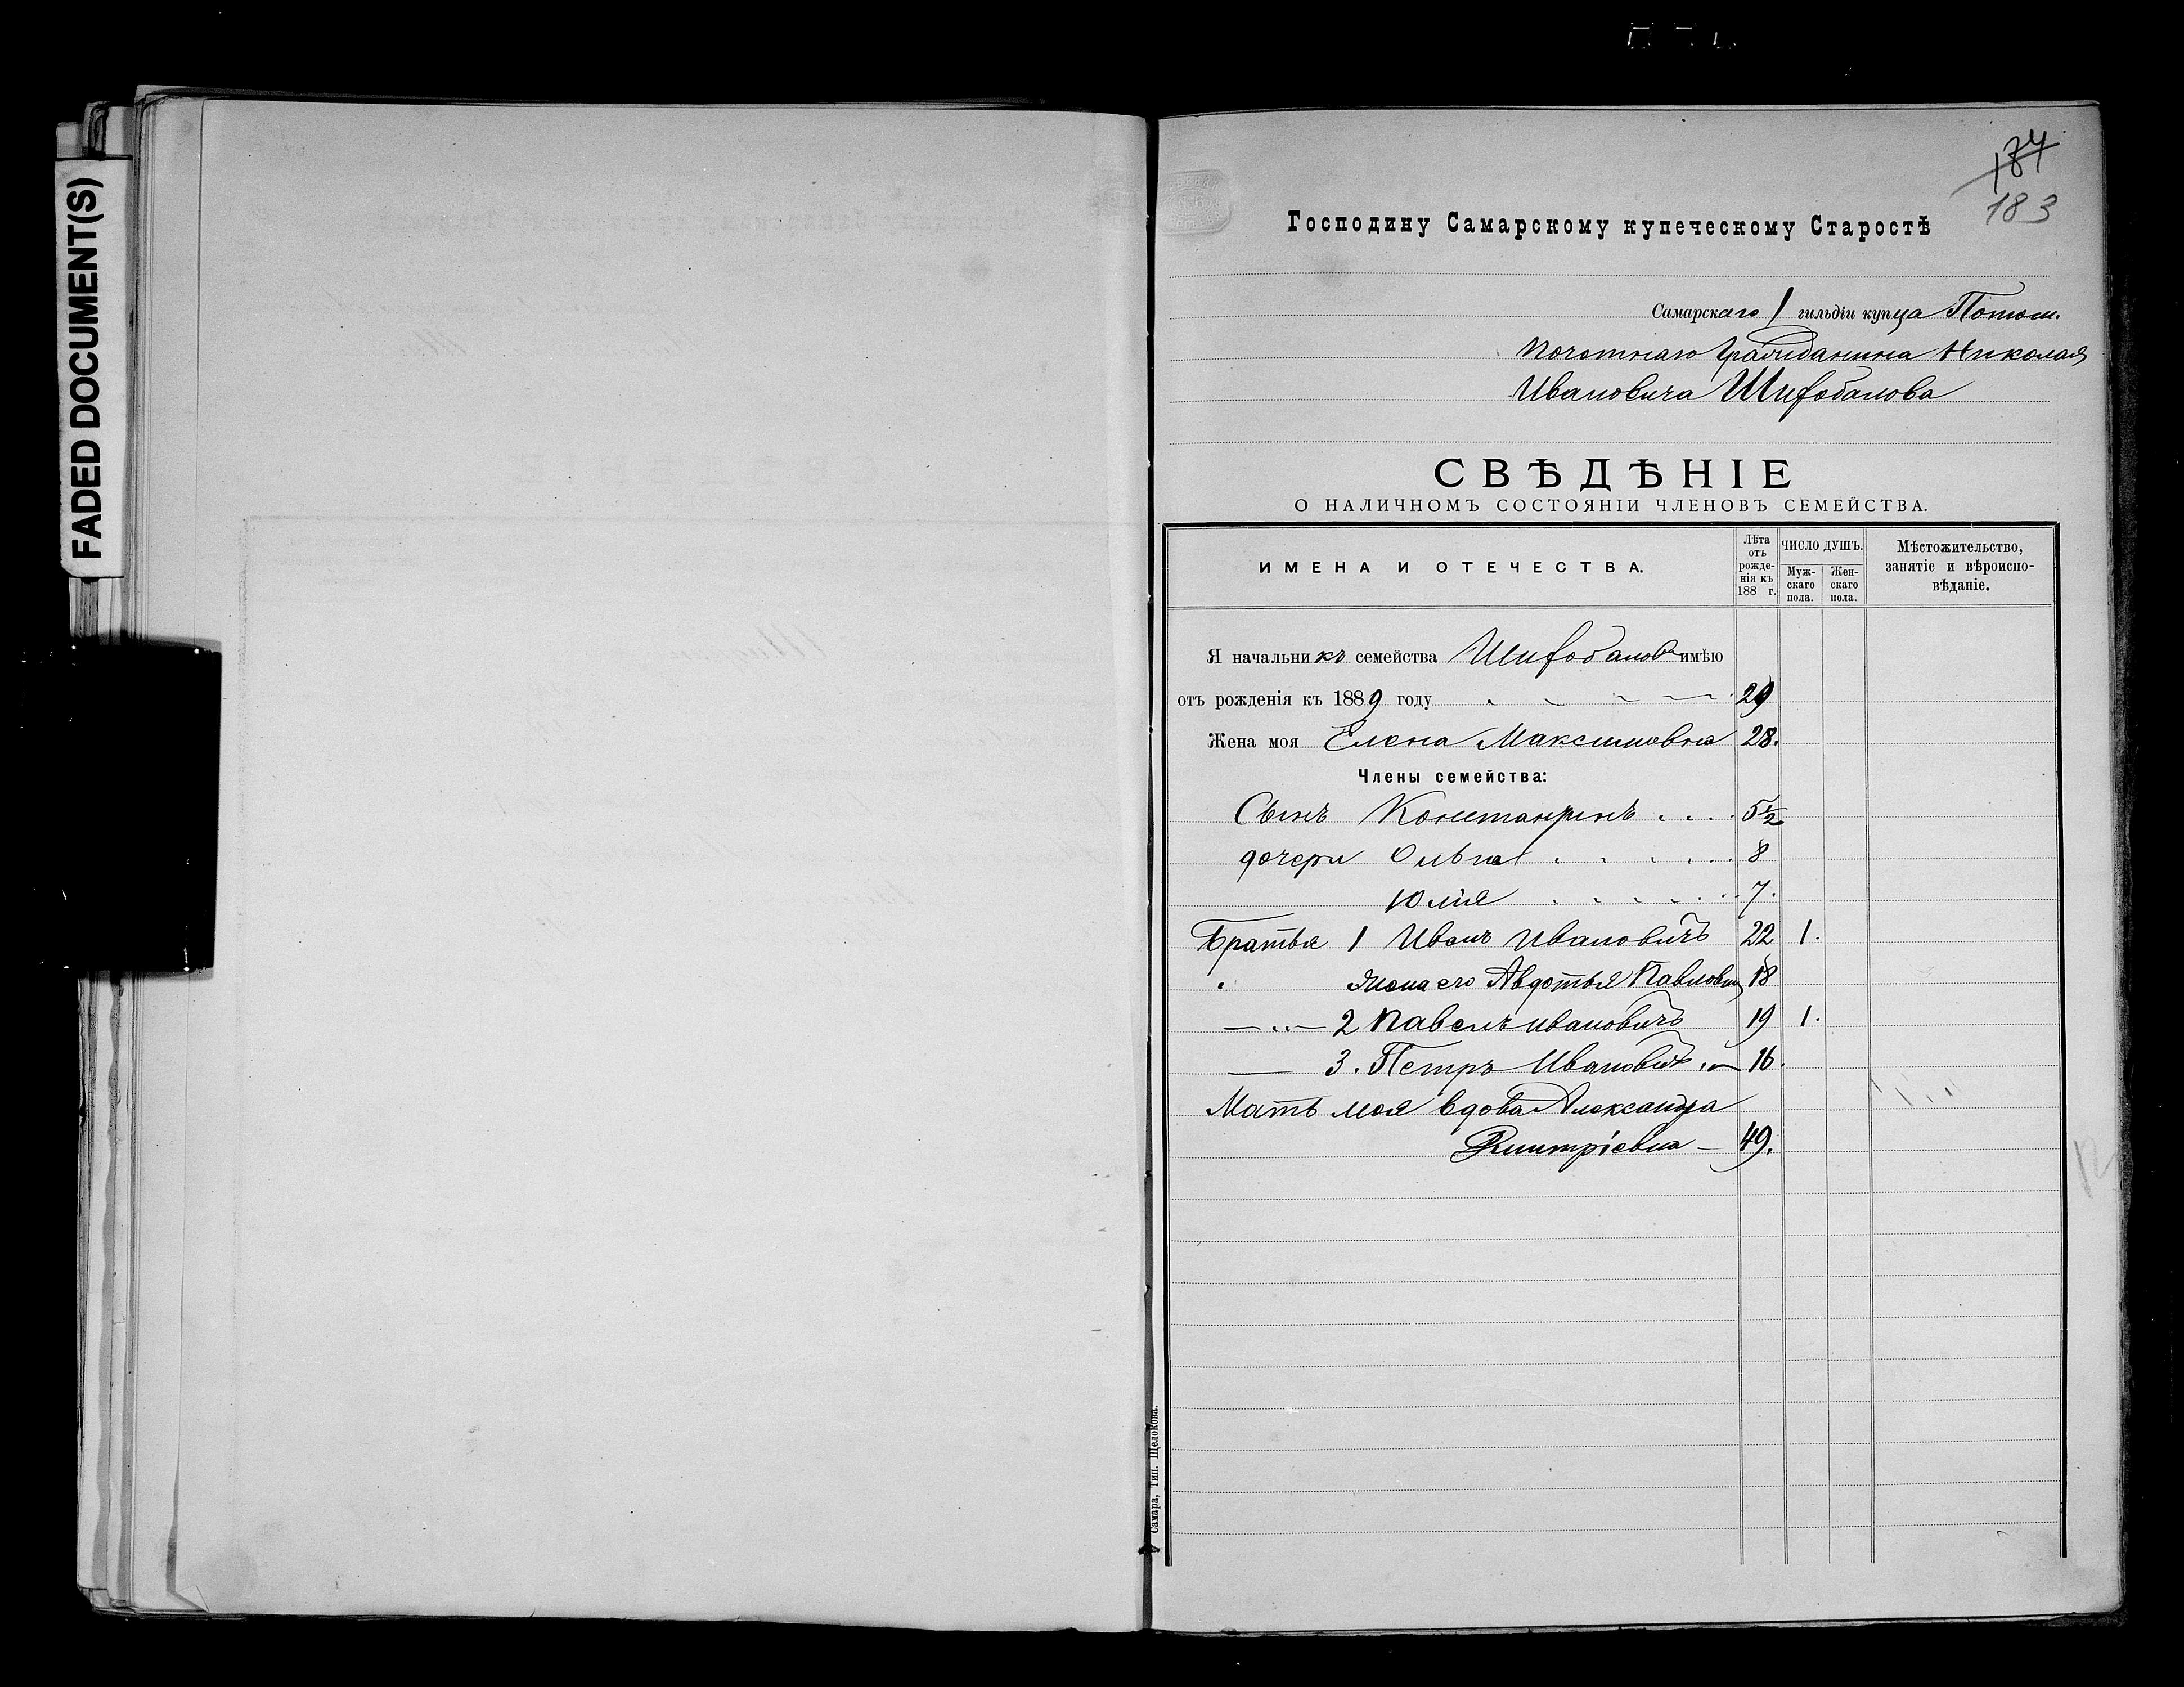 FADED DOCUMENT(S)
184
183
Господину Самарскому купеческому Старостѣ
Самарскаго 1 гильдіи купца Потом.
почотнаго гражданина Николая
Ивановича Шихобалова
СВѢДѢНІЕ
О НАЛИЧНОМЪ СОСТОЯНІИ ЧЛЕНОВЪ СЕМЕЙСТВА.
ИМЕНА И ОТЕЧЕСТВА.
Лѣта отъ рожденія къ 188 г.
ЧИСЛО ДУШЪ.
Мужскаго пола.
Женскаго пола.
Мѣстожительство, занятіе и вѣроисповѣданіе.
Я начальникъ семейства Шихобалов имѣю
отъ рожденія къ 1889 году 29
Жена моя Елена Максимовна 28.
Члены семейства:
Сынъ Константинъ 5 1/2
дочери Ольга 8
Юлія 7.
Братья 1 Иванъ Ивановичъ 22 1.
" жена его Авдотья Павловна 18
— " — 2 Павелъ Ивановичъ 19 1.
— 3. Петръ Ивановичъ 16.
Мать моя вдова Александра
Дмитріевна — 49.
Самара, Тип. Щелокова.